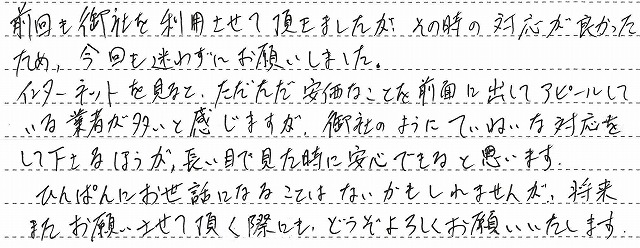 前回も御社を利用させて頂きましたが、その時の対応が良かった
ため、今回も迷わずにお願いしました。
インターネットを見ると、ただただ安価なことを前面に出してアピールして
いる業者が多いと感じますが、御社のようにていねいな対応を
して下さるほうが、長い目で見た時に安心できると思います。
ひんぱんにお世話になることはないかもしれませんが、将来
またお願いさせて頂く際にも、どうぞよろしくお願いいたします。